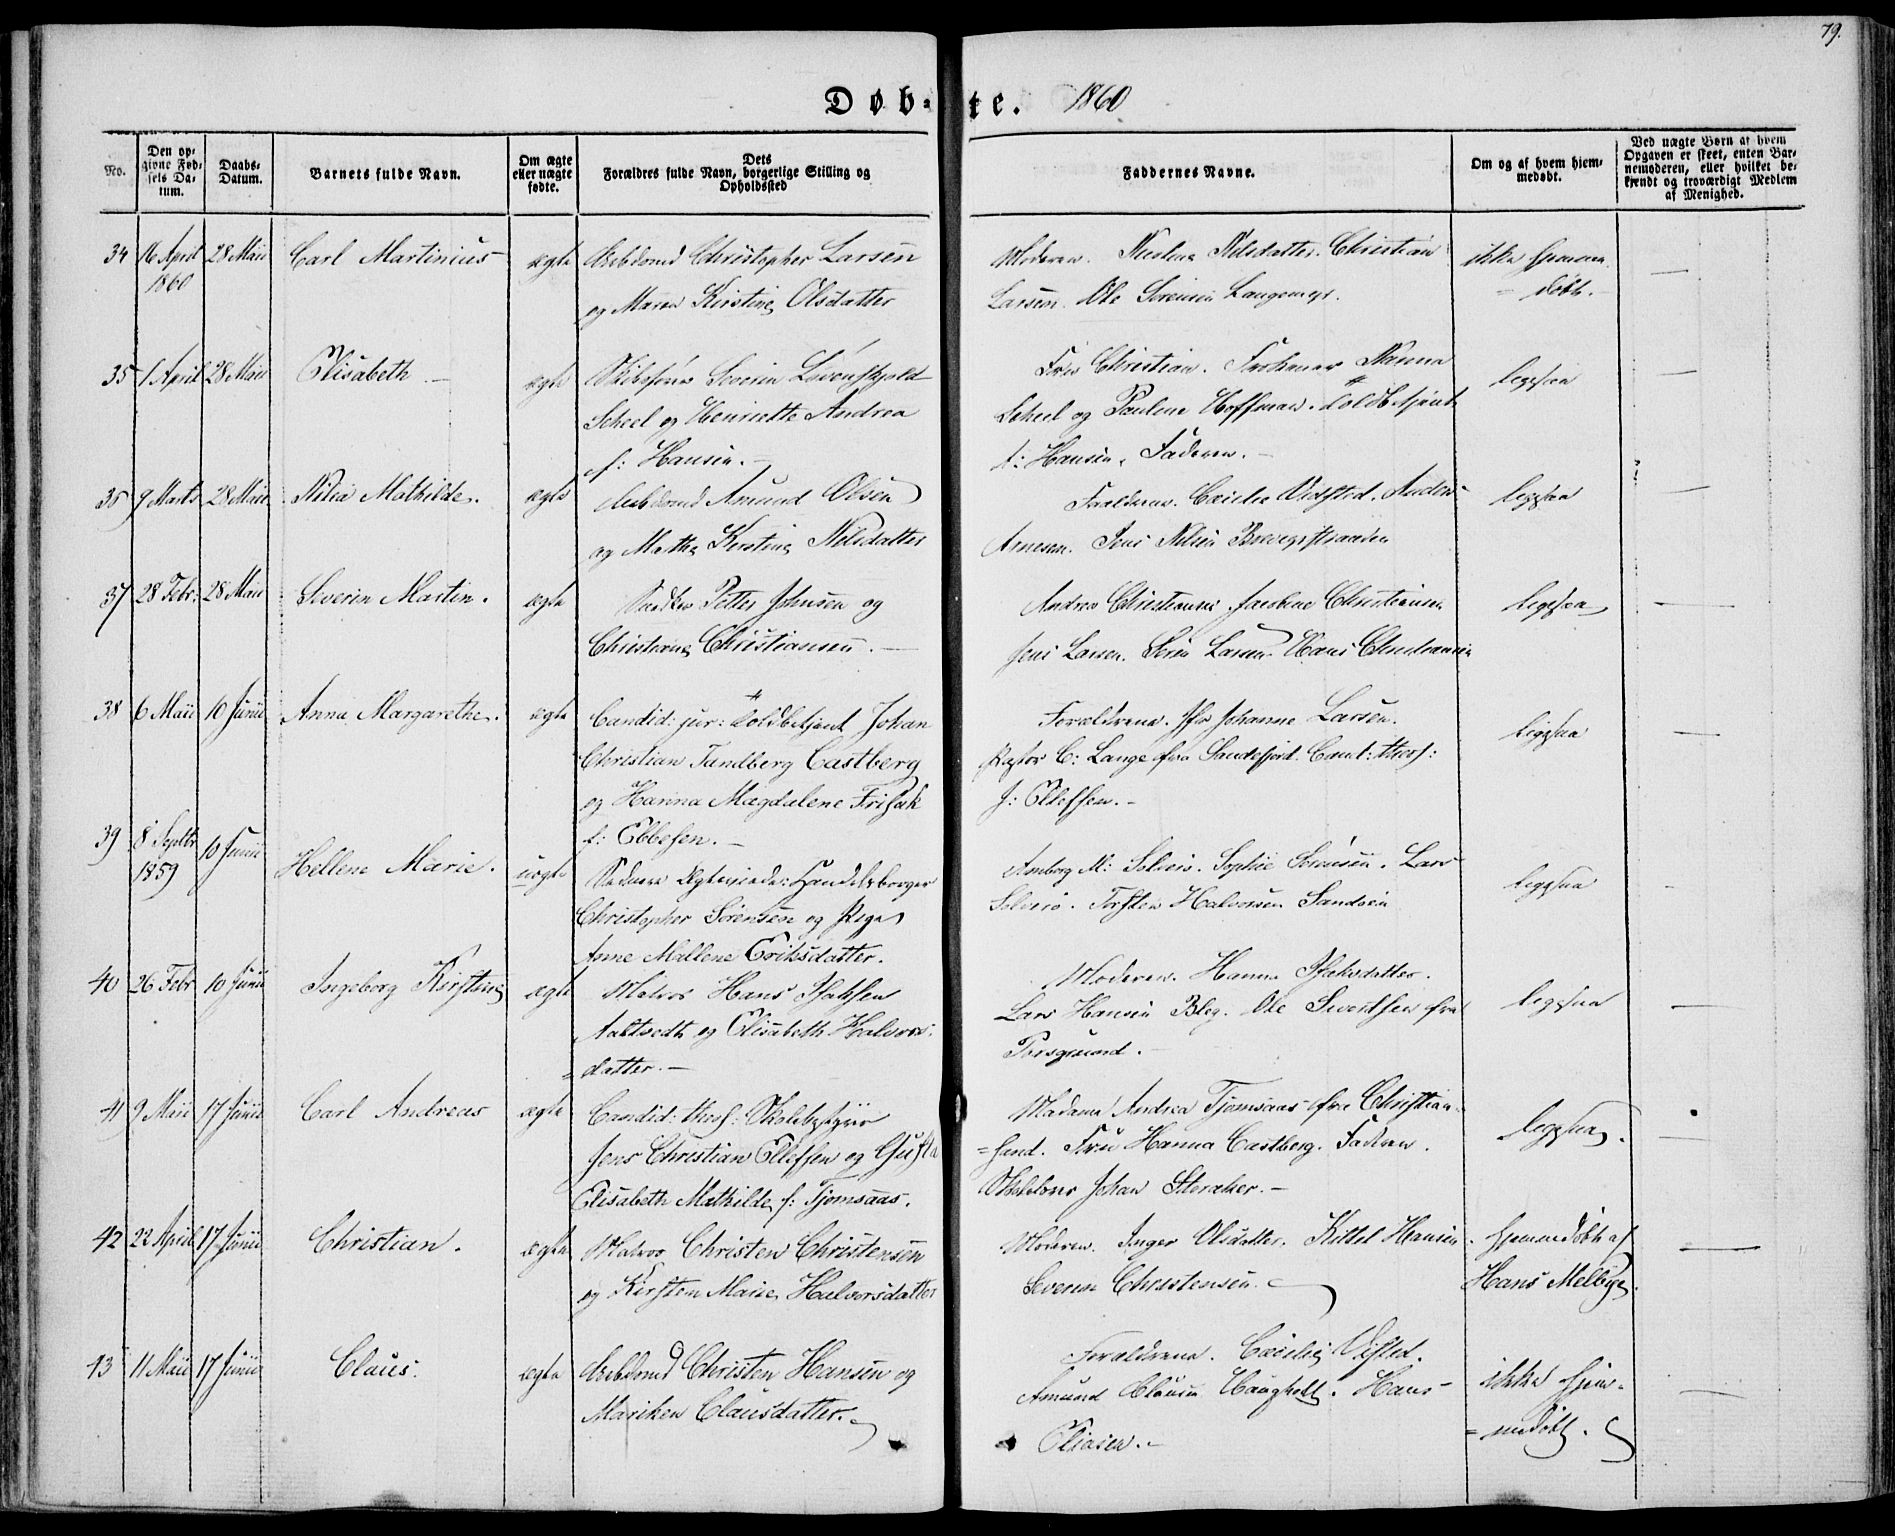 79.
Døbte. 1860
No.
Den opgivne Fødsels Datum.
Daabs-Datum.
Barnets fulde Navn.
Om ægte eller uægte fødte.
Dets Forældres fulde Navn, borgerlige Stilling og Opholdssted
Faddernes Navne.
Om og af hvem hjemmedøbt.
Ved uægte Børn af hvem Opgaven er skeet, enten Barnemoderen, eller hvilket bekjendt og troværdigt Medlem af Menighed.
34 16 April 1860 28 Maii Carl Martinius ægte Arbdsmd Christopher Larsen
og Maren Kirstine Olsdatter
Moderen. Nilsdatter. Christian
Larsen. Ole Sørensen Langemyr.
ikke hjemme
= døbt.
35 1 April 28 Maii Elisabeth ægte Skibsfører Severin Løvenskjold
Scheel og Henriette Andrea
f: Hansen.
Fru Christian. Frøkener Nanna
Scheel og Pauline Hoffman. Toldbetjent
Hansen, Faderen.
ligesaa
36 9 Marts 28 Maii Nilia Mathilde. ægte Arbdsmd Amund Olsen
og Mathe Kirstine Nilsdatter
Forældrene. Cecilie Vidsted. Anders
Arnesen. Jens Nilsen Brevigsstranden
ligesaa
37 28 Febr: 28 Maii Severin Martin. ægte Petter Johnsen og
Christiane Christiansen.
Andrea Christiansen. Jacobine Christiansen
Jens Larsen. Søren Larsen. Hans Christiansen
ligesaa
38 6 Maii 10 Junii Anna Margarethe. ægte Candid: jur: Toldbetjent Johan
Christian Tandberg Castberg
og Hanna Magdalene Frisak
f: Ebbesen.
Forældrene. Jfr Johanne Larsen.
Pastor C: Lange fra Sandefjord. Cand: theol:
J: Ellefsen.
ligesaa
39 8 Septbr 1859 10 Junii Hellene Marie. uægte Handelsborger
Christopher Sørensen og Pige
Anne Mallene Eriksdatter.
Amborg M: Solverø. Sophie Sørensen. Lars
Solverø. Torsten Halvorsen Sandøen
ligesaa
40 26 Febr 10 Junii Ingeborg Kirstine ægte Matros Hans Isaksen
Aaltvedt og Elisabeth Halvors:
= datter.
Moderen. Hanna Isaksdatter.
Lars Hansen Bleg. Ole Sivertsen fra
Porsgrund.
ligesaa
41 9 Maii 17 Junii Carl Andreas ægte Candid: theol: Skolebestyrer
Jens Christian Ellefsen og Gusta
Elisabeth Mathilde f: Tjomsaas.
Madame Andrea Tjomsaas fra Christian-
= sand. Frue Hanna Castberg. Faderen.
Johan Steraker.
ligesaa.
42 22 April 17 Junii Christian. ægte Matros Christen Christensen
og Kirsten Marie Halvorsdatter
Moderen. Inger Olsdatter. Kittel Hansen.
Severin Christensen.
hjemmedøbt af
Hans Melbye.
43 11 Maii 17 Junii Claus. ægte Arbdsmd Christen Hansen og
Mariken Clausdatter.
Forældrene. Cecilie Vidsted.
Amund Clausen Haugholt. Hans
Eliasen.
ikke hjem-
= medøbt.